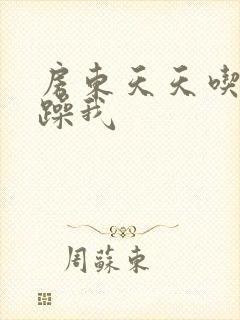 房东天天喫
躁我
周蘇東